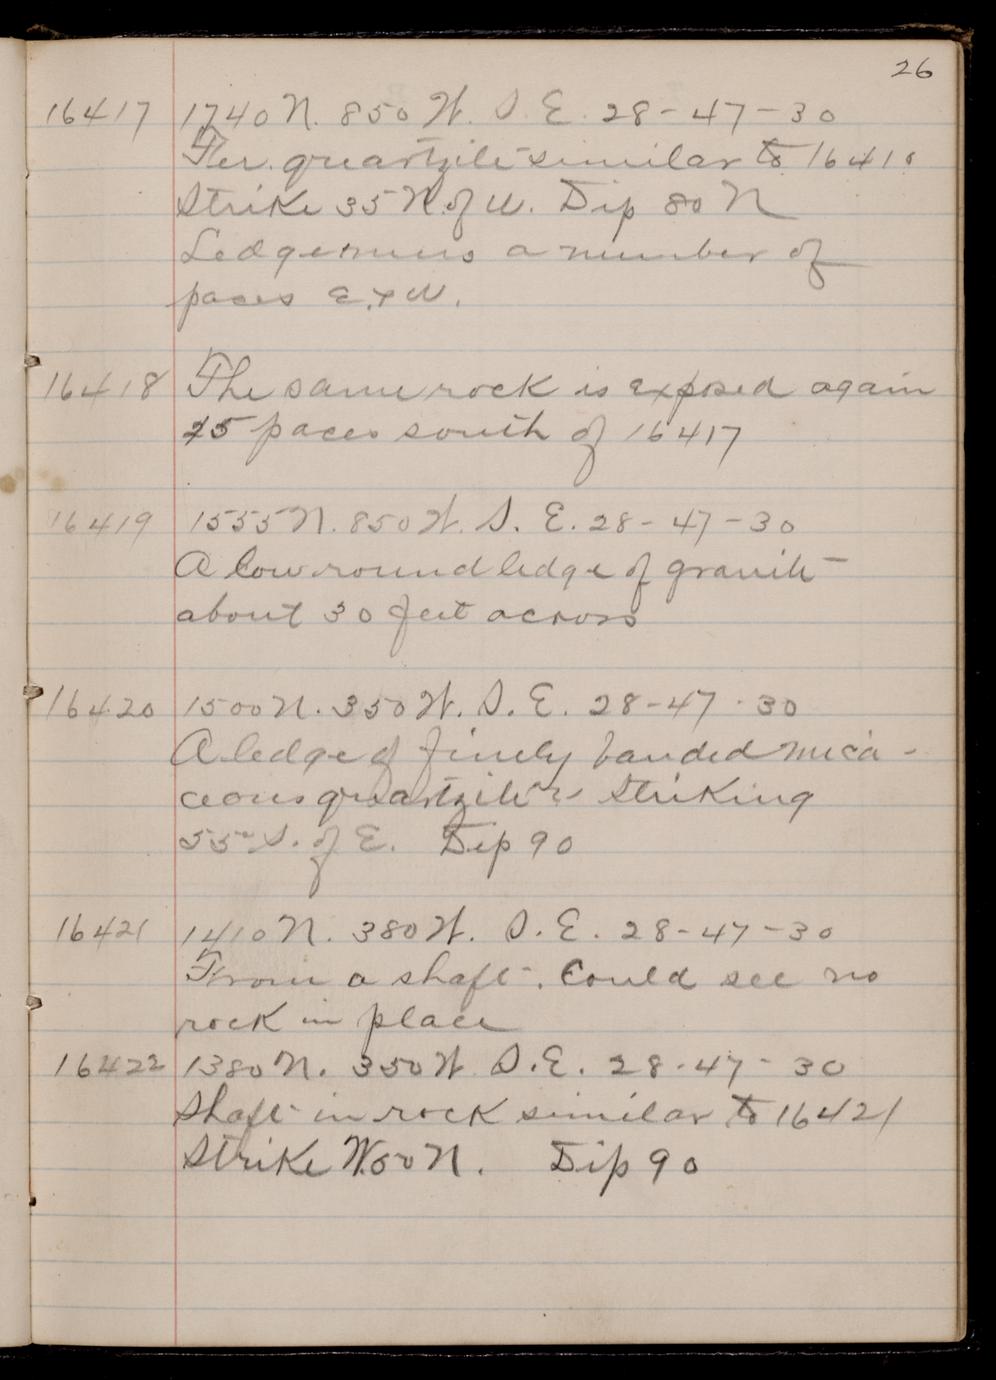 26
16417 1740 N. 850 W. S. E. 28-47-30
Fer. quartzite similar to 16410
Strike 35 N. of W. Dip 80 N
Ledge runs a number of
paces E. & W.
16418 The same rock is exposed again
25 paces south of 16417
16419 1555 N. 850 W. S. E. 28-47-30
A low round ledge of granite
about 30 feet across
16420 1500 N. 350 W. S. E. 28-47-30
A ledge of finely banded mica-
ceous quartzite striking
55° S. of E. Dip 90
16421 1410 N. 380 W. S. E. 28-47-30
From a shaft. Could see no
rock in place
16422 1380 N. 350 W. S. E. 28-47-30
Shaft in rock similar to 16421
Strike W. 50 N. Dip 90